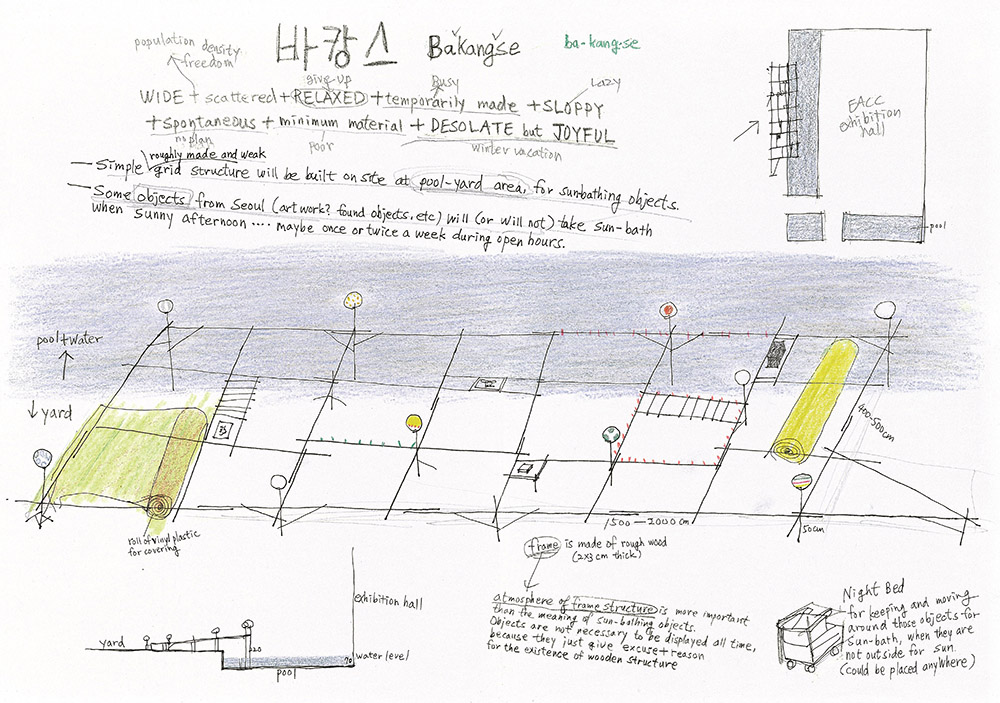 바캉스 Bakangse ba-kang-se
population density
freedom
give-up
Busy
Lazy
WIDE + scattered + RELAXED + temporarily made + SLOPPY
+ spontaneous + minimum material + DESOLATE but JOYFUL
no plan
poor
winter vacation
roughly made and weak
— Simple grid structure will be built on site at pool-yard area, for sunbathing objects.
— Some objects from Seoul (art work? found objects, etc) will (or will not) take sun-bath
when sunny afternoon .... maybe once or twice a week during open hours.
EACC
exhibition
hall
pool
pool+water
yard
400-500cm
1500-2000cm
50cm
roll of vinyl plastic
for covering
frame is made of rough wood
(2x3 cm thick)
atmosphere of frame structure is more important
than the meaning of sun-bathing objects.
Objects are not necessary to be displayed all time,
because they just give excuse+reason
for the existence of wooden structure
exhibition hall
yard
120
water level
70
pool
Night Bed
for keeping and moving
around those objects for
sun-bath, when they are
not outside for sun.
(could be placed anywhere)